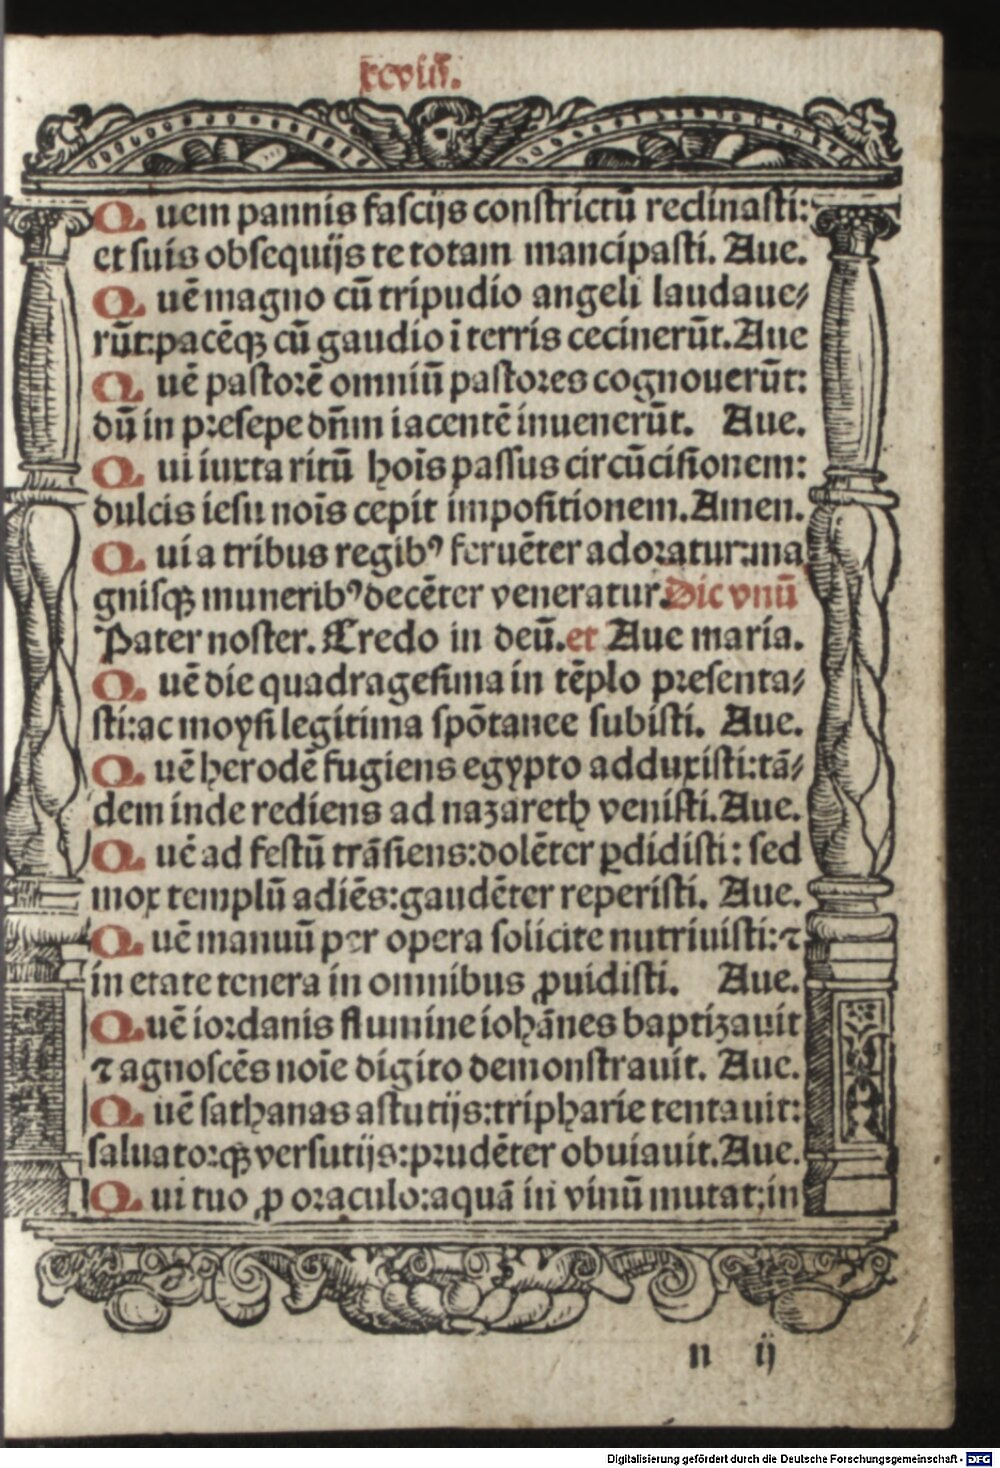 xcviij.
Quem pannis fascijs constrictū reclinasti:
et suis obsequijs te totam mancipasti. Aue.
Quē magno cū tripudio angeli laudaue⸗
rūt:pacēqꝫ cū gaudio ī terris cecinerūt. Aue
Quē pastorē omniū pastores cognouerūt:
dū in presepe dn̄m iacentē inuenerūt. Aue.
Qui iuxta ritū hoīs passus circūcisionem:
dulcis iesu noīs cepit impositionem. Amen.
Qui a tribus regibꝰ feruēter adoratur:ma
gnisqꝫ muneribꝰ decēter veneratur. Dic vnū
Pater noster. Credo in deū. et Aue maria.
Quē die quadragesima in tēplo presenta⸗
sti:ac moysi legitima spōtanee subisti. Aue.
Quē herodē fugiens egypto adduxisti:tā⸗
dem inde rediens ad nazareth venisti. Aue.
Quē ad festū trāsiens:dolēter ꝑdidisti: sed
mox templū adiēs:gaudēter reperisti. Aue.
Quē manuū per opera solicite nutriuisti:⁊
in etate tenera in omnibus ꝓuidisti. Aue.
Quē iordanis flumine iohānes baptizauit
⁊ agnoscēs noīe digito demonstrauit. Aue.
Quē sathanas astutijs:tripharie tentauit:
saluatorqꝫ versutijs:prudēter obuiauit. Aue.
Qui tuo ꝓ oraculo:aquā in vinū mutat:in
n ij
Digitalisierung gefördert durch die Deutsche Forschungsgemeinschaft - DFG